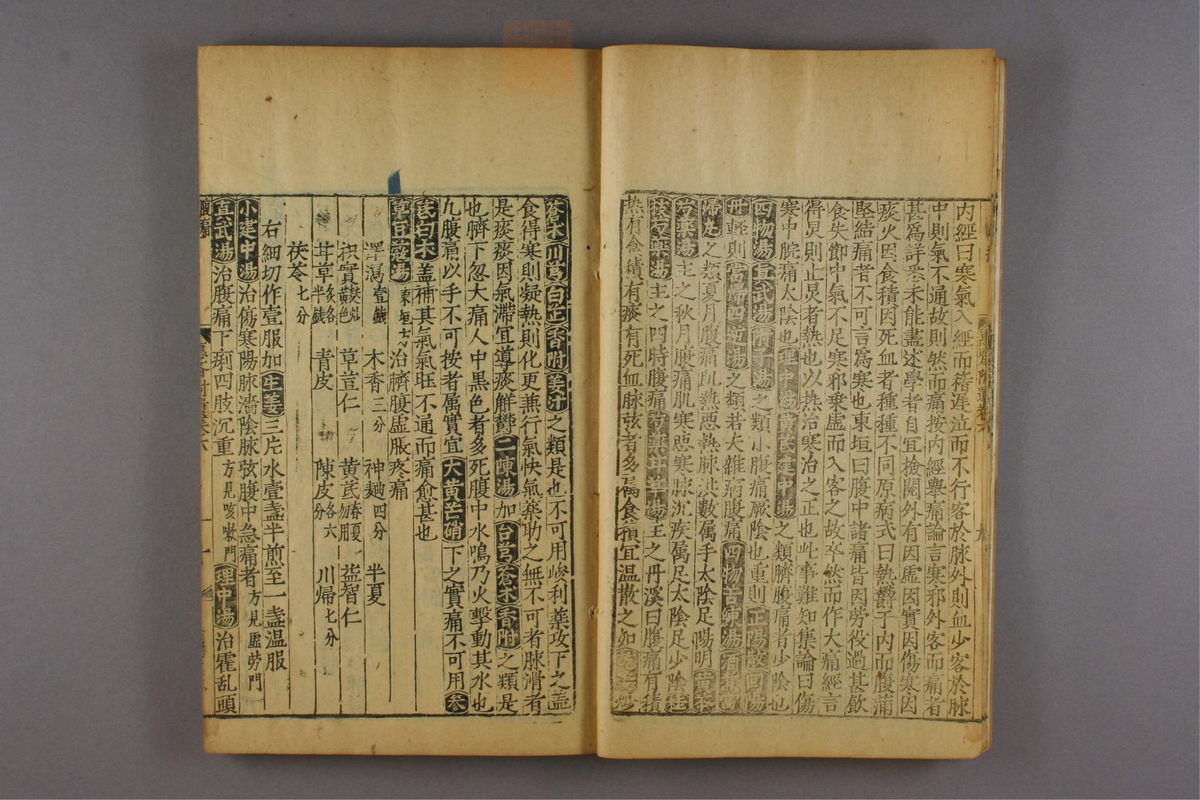 內經曰寒氣入經而稽遲泣而不行客於脉外則血少客於脉
中則氣不通故則然而痛按內經舉痛論言寒邪外客而痛者
甚爲詳悉未能盡述學者自宜檢閱外有因虛因實因傷寒因
痰火因食積因死血者種種不同原病式曰熱欝于內而腹滿
堅結痛者不可言爲寒也東垣曰腹中諸痛皆因勞役過甚飲
食失節中氣不足寒邪乘虛而入客之故卒然而作大痛經言
得炅則止炅者熱也以熱治寒治之正也此事難知集論曰傷
寒中脘痛太陰也理中湯黃芪建中湯之類臍腹痛者少陰也
四物湯真武湯附子湯之類小腹痛厥陰也重則正陽散回陽
丹輕則當歸四逆湯之類若夫雜病腹痛四物苦練湯
之類夏月腹痛肌熱惡熱脉洪數属手太陰足陽明黃芩
芍藥湯主之秋月腹痛肌寒惡寒脉沉疾属足太陰足少陰桂
枝芍藥湯主之四時腹痛芍藥甘草湯主之丹溪曰腹痛有積
熱有食積有痰有死血脉弦者多属食積宜温散之如
蒼术川芎白芷香附姜汁之類是也不可用峻利藥攻下之盖
食得寒則凝熱則化更兼行氣快氣藥助之無不可者脉滑者
是痰痰因氣滯宜導痰觧欝二陳湯加台芎蒼术香附之類是
也臍下忽大痛人中黑色者多死腹中水鳴乃火擊動其水也
九腹痛以手不可按者属實宜大黃芒硝下之實痛不可用参
芪白术盖補其氣氣旺不通而痛愈甚也
草豆蔻湯東垣方治臍腹虛脹疼痛
澤瀉壹錢 木香三分 神麯四分 半夏
枳實黃色 草荳仁 黃芪春夏勿用 益智仁
甘草半錢 青皮 陳皮各六分 川歸七分
茯苓七分
右細切作壹服加生姜三片水壹盞半煎至一盞温服
小建中湯治傷寒陽脉濇陰脉弦腹中急痛者方見虛勞門
真武湯治腹痛下痢四肢沉重方見咳嗽門理中湯治霍乱頭